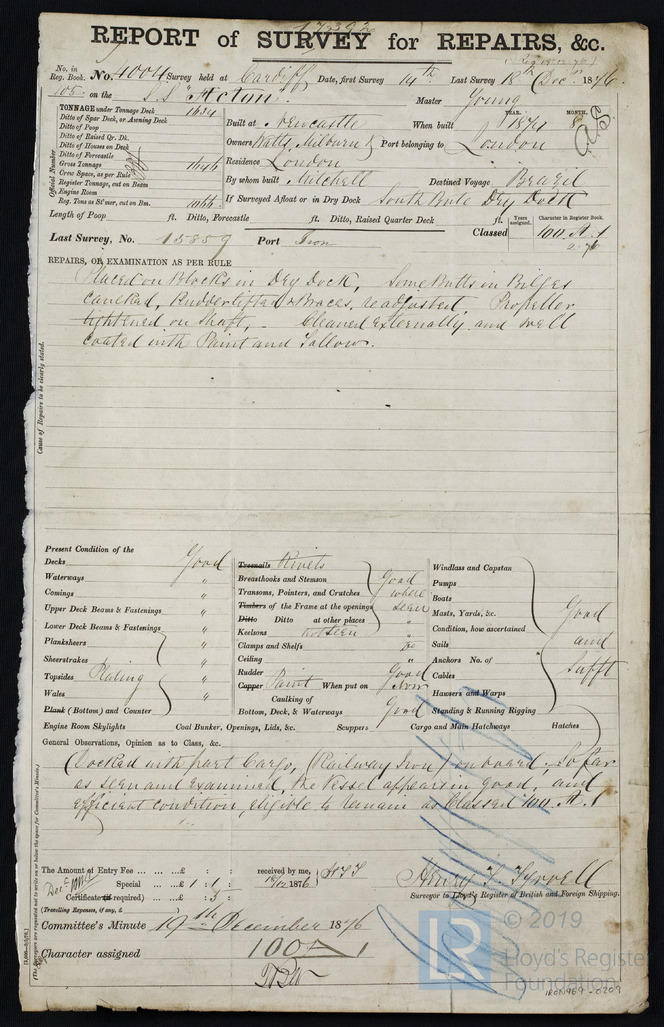 17392
REPORT of SURVEY for REPAIRS, &c.
No. in Reg. Book. No. 4004 Survey held at Cardiff Date, first Survey 14th Last Survey 18th Decr 1876.
105 on the S.S. "Acton" Master Young
TONNAGE under Tonnage Deck 1634
Ditto of Spar Deck, or Awning Deck
Ditto of Poop
Ditto of Raised Qr. Dk.
Ditto of Houses on Deck
Ditto of Forecastle
Gross Tonnage 1646
Crew Space, as per Rule
Register Tonnage, cut on Beam
Engine Room
Reg. Tons as St'mer, cut on Bm. 1066
Official Number
Built at Newcastle When built YEAR. 1874 MONTH. 8
Owners Watts, Milburn Port belonging to London
Residence London
By whom built Mitchell Destined Voyage Brazil
If Surveyed Afloat or in Dry Dock South Bute Dry Dock
Length of Poop ft. Ditto, Forecastle ft. Ditto, Raised Quarter Deck ft.
Years assigned. Character in Register Book.
Last Survey, No. 15859 Port Iron Classed 100 A.1
2.76
REPAIRS, OR EXAMINATION AS PER RULE
Placed on Blocks in Dry Dock, Some Butts in Bilges
caulked, Rudder lifted & Braces, readjusted, Propeller
tightened on Shaft, - Cleaned Externally and well
coated with Paint and Tallow.
Cause of Repairs to be clearly stated.
Present Condition of the
Decks Good
Waterways "
Comings "
Upper Deck Beams & Fastenings "
Lower Deck Beams & Fastenings "
Planksheers "
Sheerstrakes "
Topsides Plating "
Wales "
Plank (Bottom) and Counter "
Treenails Rivets
Breasthooks and Stemson Good
Transoms, Pointers, and Crutches where
Timbers of the Frame at the openings seen
Ditto Ditto at other places "
Keelsons not seen "
Clamps and Shelfs
Ceiling "
Rudder Good
Copper Paint When put on Now
Caulking of
Bottom, Deck, & Waterways Good
Windlass and Capstan
Pumps
Boats
Masts, Yards, &c. Good
Condition, how ascertained
Sails and
Anchors No. of
Cables Sufft
Hawsers and Warps
Standing & Running Rigging
Engine Room Skylights Coal Bunker, Openings, Lids, &c. Scuppers Cargo and Main Hatchways Hatches
General Observations, Opinion as to Class, &c.
Docked with part Cargo, (Railway Iron) on board, So far
as seen and examined, the Vessel appears in good, and
efficient condition, eligible to remain as Classed 100 A.1
The Amount of Entry Fee £ : : received by me,
Special £ 1 : 1 : 18/12 1876
Certificate (if required) : 5
(Travelling Expenses, if any, £ )
Henry T. Tyrrell
Surveyor to Lloyd's Register of British and Foreign Shipping.
Committee's Minute 19th December 1876
Character assigned 100 A 1
(The Surveyors are requested not to write on or below the space for Committee's Minute.)
LR © 2019
Lloyd's Register
Foundation
IRON469-0209